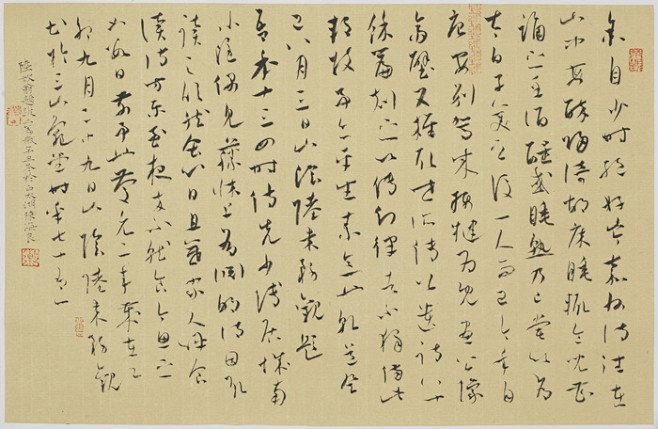 余自少時絕好岑嘉州詩往在
山中每醉歸倚胡床睡輒令兒曹
誦之至酒醒或睡熟乃已嘗以為
太白子美之後一人而已今年自
唐安別駕來攝犍為既畫公像
齋壁又雜取世所傳公遺詩八十
餘篇刻之以傳知律者不獨備此
邦故事亦平生素意也乾道癸
巳八月三日山陰陸某務觀題
吾年十三四時侍先少傅居城南
小隱偶見藤床上有淵明詩因取
讀之欣然會心日且暮家人呼食
讀詩方樂至夜卒不就食今思之
如數日前事也慶元二年歲在乙
卯九月二十九日山陰陸某務觀
書於三山龜堂時年七十有一
陸放翁題跋